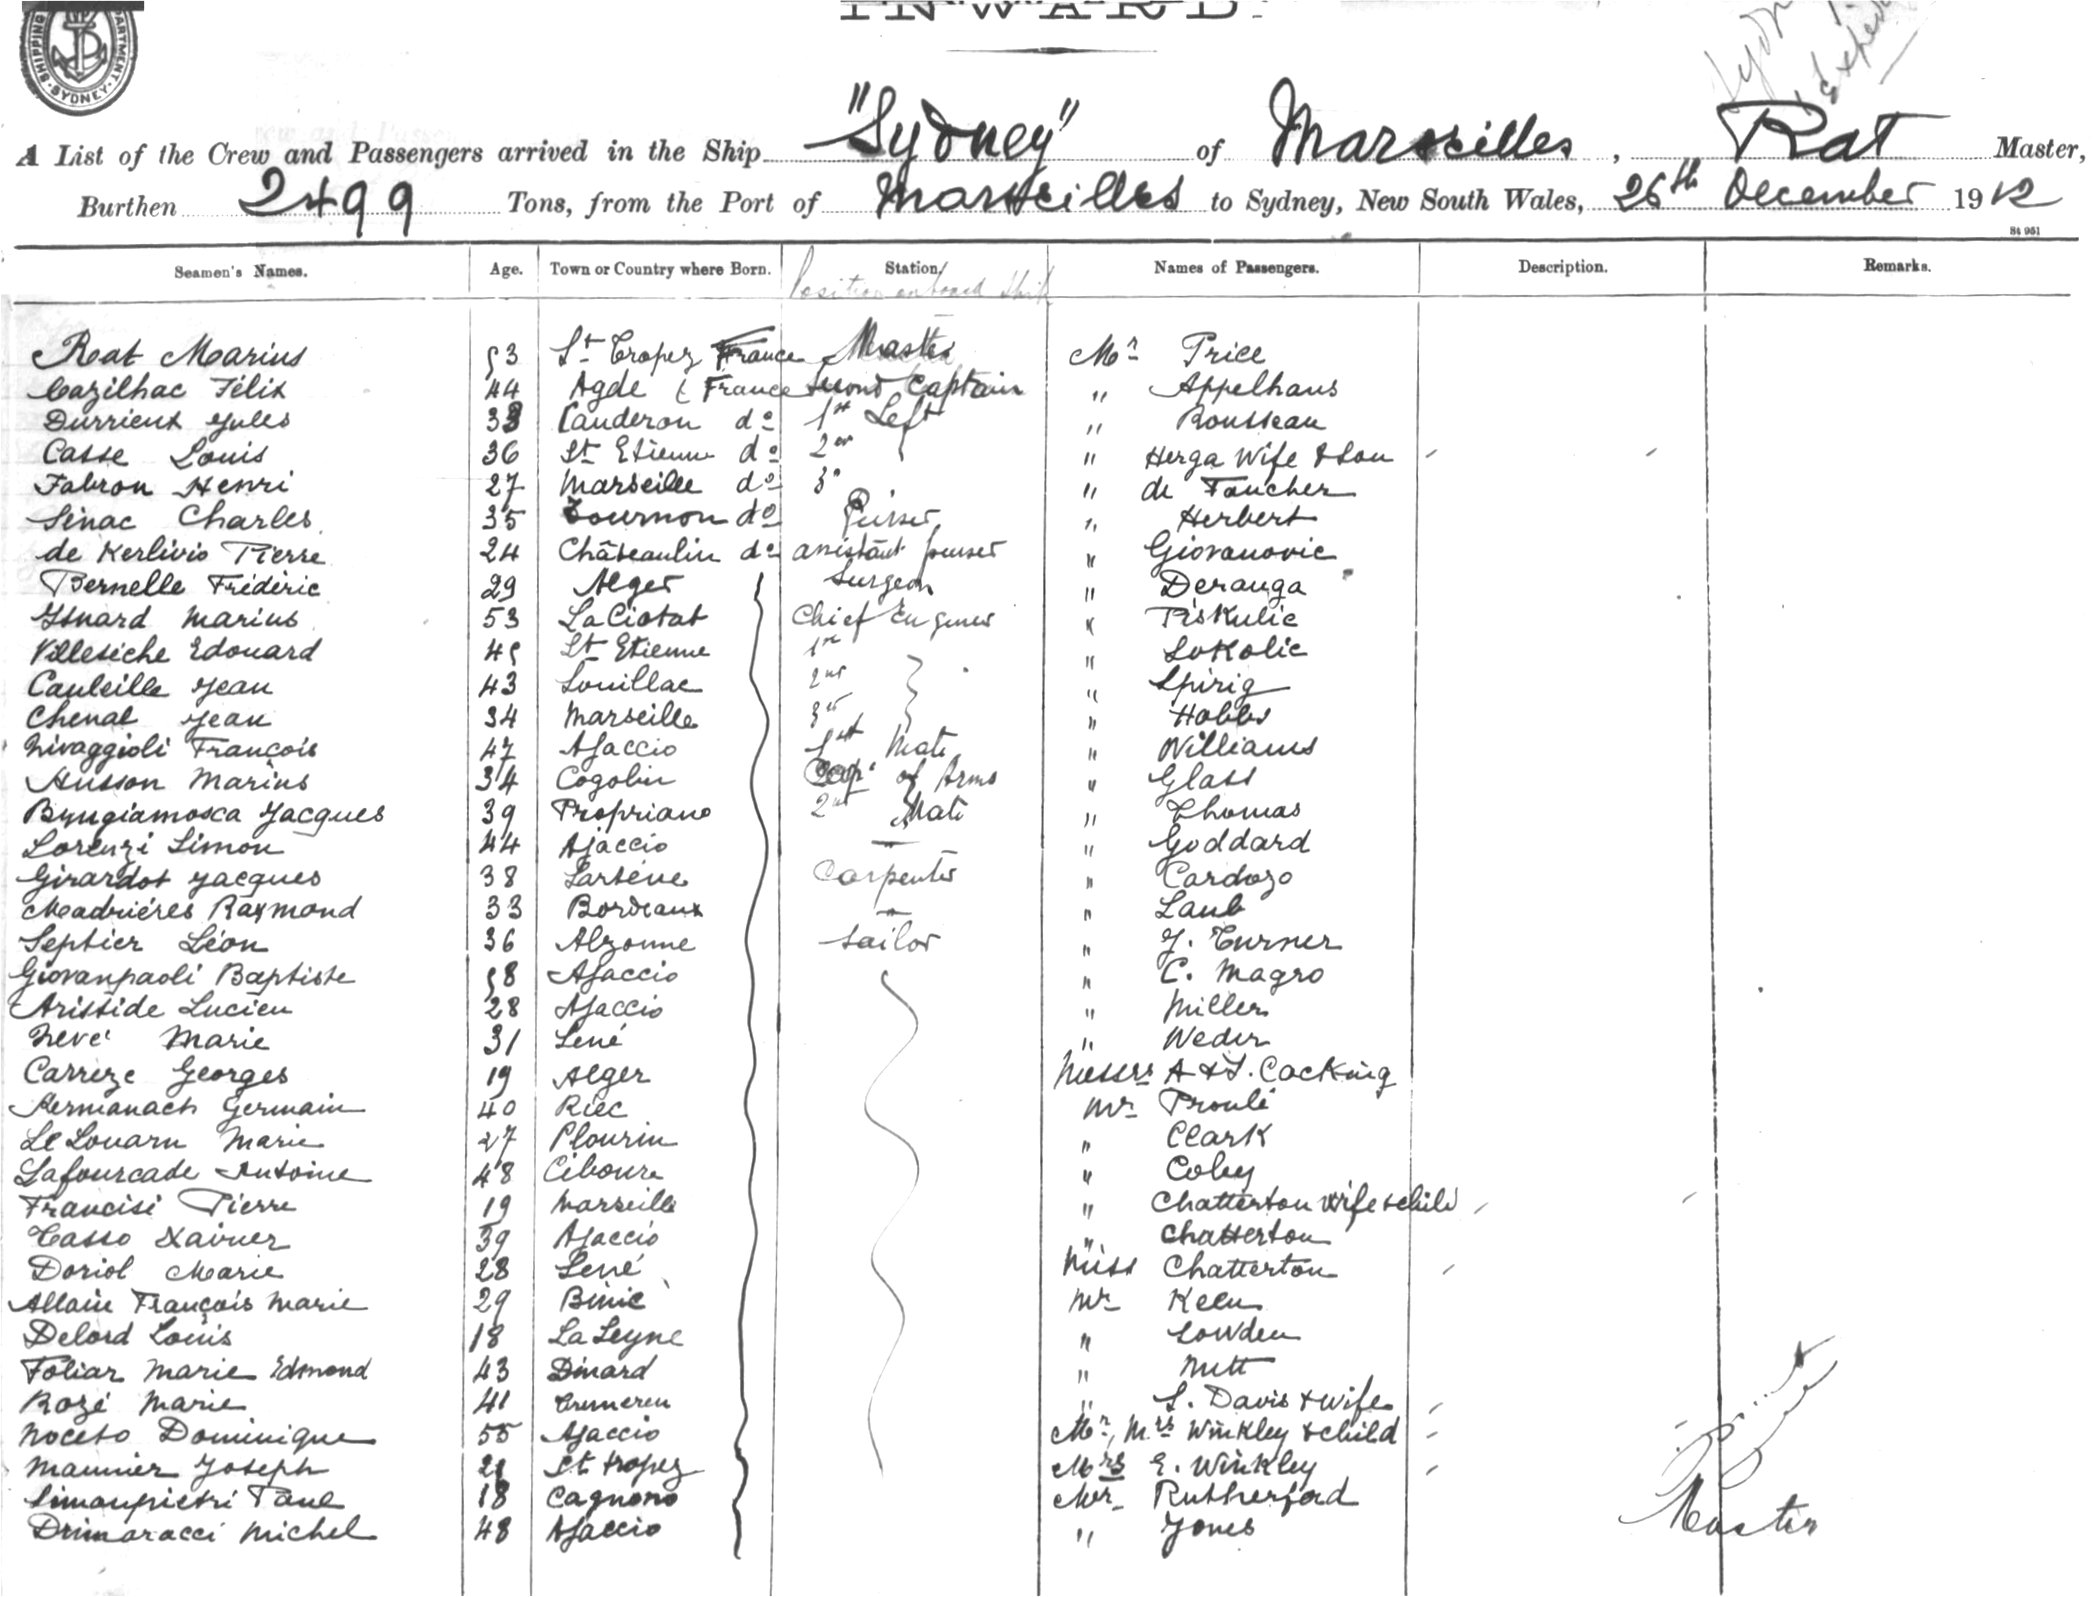 SHIPPING DEPARTMENT SYDNEY
INWARD.
A List of the Crew and Passengers arrived in the Ship "Sydney" of Marseilles, Rat Master,
Burthen 2499 Tons, from the Port of Marseilles to Sydney, New South Wales, 26th December 1912
St 951
Seamen's Names. Age. Town or Country where Born. Station/ Names of Passengers. Description. Remarks.
Position on board Ship
Rat Marius 53 St Tropez France Master Mr Price
Cazilhac Félix 44 Agde (France Second Captain " Appelhans
Durrieux Jules 33 Cauderon do 1st Left " Rousseau
Casse Louis 36 St Etienne do 2nd " Herga Wife & Son
Fabron Henri 27 Marseille do 3d " de Foucher
Sinac Charles 35 Tournon do Purser " Herbert
de Kerlivio Pierre 24 Châteaulin do assistant purser " Giovanovic
Bernelle Frédéric 29 Alger Surgeon " Deranga
Isnard Marius 53 La Ciotat Chief Engineer " Piskulic
Villesèche Edouard 45 St Etienne 1st " Sokolic
Cauleille Jean 43 Souillac 2nd " Spirig
Chenal Jean 34 Marseille 3rd " Hobbs
Livaggioli François 47 Ajaccio 1st Mate " Williams
Husson Marius 34 Cogolin Cap. of Arms " Glass
Byugiamosca Jacques 39 Propriano 2nd Mate " Thomas
Lorenzi Simon 44 Ajaccio — " Goddard
Girardot Jacques 38 Larsène Carpenter " Cardozo
Madrières Raymond 33 Bordeaux — " Laub
Septier Léon 36 Alzonne Sailor " J. Turner
Giovanpaoli Baptiste 58 Ajaccio " C. Magro
Aristide Lucien 28 Ajaccio " Miller
Nevé Marie 31 Sené " Weder
Carreze Georges 19 Alger Messrs A & J. Cocking
Kermanach Germain 40 Riec Mr Proulé
Le Louarn Marie 27 Plourin " Clark
Lafourcade Antoine 48 Ciboure " Coley
Francisi Pierre 19 Marseille " Chatterton Wife & child
Tasso Xavier 39 Ajaccio " Chatterton
Doriol Marie 28 Sené Miss Chatterton
Allain François Marie 29 Binic Mr Keen
Delord Louis 18 La Seyne " Lowden
Foliar Marie Edmond 43 Dinard " Nutt
Rozé Marie 41 " S. Davis & Wife
Noceto Dominique 55 Ajaccio Mr, Mrs Winkley & child
Maunier Joseph 21 St tropez Mrs E. Winkley
Simonpietri Paul 18 Cagnono Mr Rutherford
Drimaracci Michel 48 Ajaccio " Jones
Master